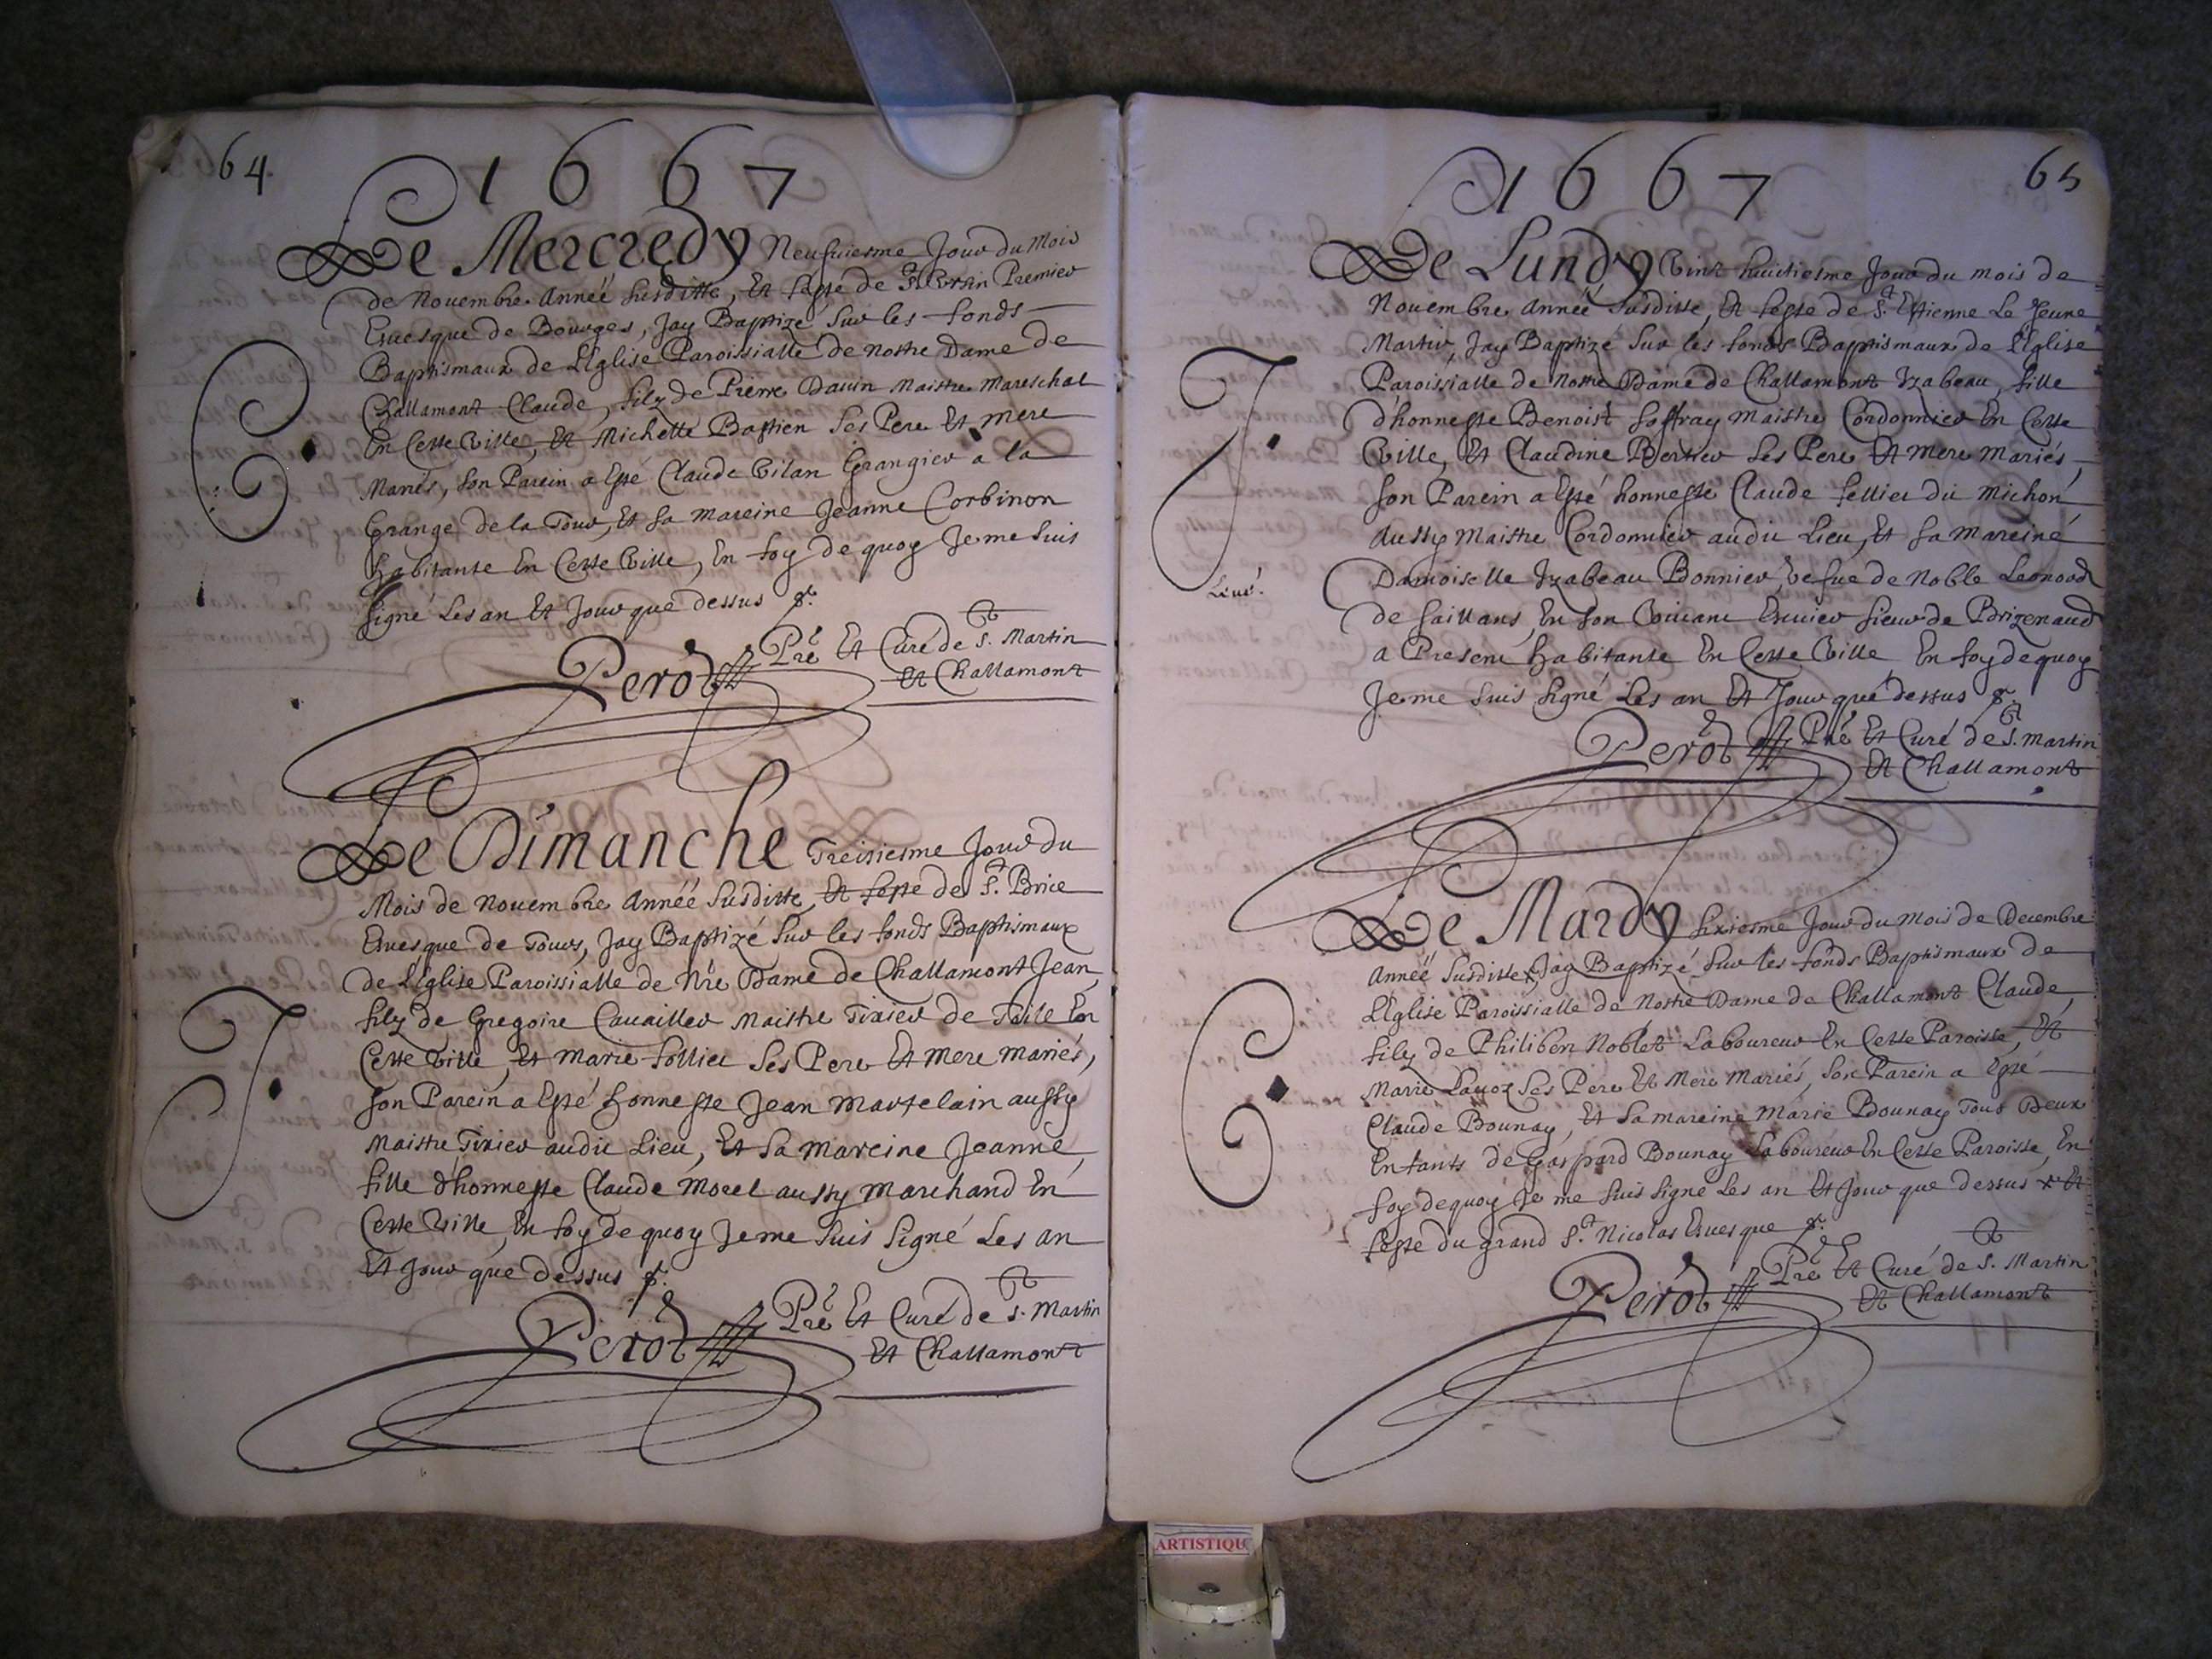 64
1667
C.
Le Mercredy Neufuiesme Jour du Mois
de Nouembre Année Susditte, Et feste de St. Vrsin Premier
Euesque de Bourges, Jay Baptizé Sur les fonds
Baptismaux de LEglise Paroissialle de Nostre Dame de
Challamont Claude, filz de Pierre Dauin Maistre Mareschal
En Cette Ville, Et Michelle Bastien Ses Pere Et Mere
Mariés, Son Parein a Esté Claude Vilan Grangier a la
Grange de la Tour, Et Sa Mareine Jeanne Corbinon
habitante En Cette Ville, En foy de quoy Je me Suis
Signé Les an Et Jour que dessus
Perot Pre Et Curé de St. Martin
Et Challamont
J.
Le Dimanche Treisiesme Jour du
Mois de Nouembre Année Susditte, Et feste de St. Brice
Euesque de Tours, Jay Baptizé Sur les fonds Baptismaux
de LEglise Paroissialle de Nre Dame de Challamont Jean,
filz de Gregoire Cauailler Maistre Tixier de Toile En
Cette Ville, Et Marie follier Ses Pere Et Mere Mariés,
Son Parein a Esté honneste Jean Martelain aussy
Maistre Tixier audit Lieu, Et Sa Mareine Jeanne,
fille d'honneste Claude Morel aussy Marchand En
Cette Ville, En foy de quoy Je me Suis Signé Les an
Et Jour que dessus
Perot Pre Et Curé de St. Martin
Et Challamont
1667
65
J.
Leué.
Le Lundy Vint huictiesme Jour du mois de
Nouembre Année Susditte, Et feste de St. Estienne Le Jeune
Martir, Jay Baptizé Sur les fonds Baptismaux de LEglise
Paroissialle de Nostre Dame de Challamont Izabeau, fille
d'honneste Benoist Soffray Maistre Cordonnier En Cette
Ville, Et Claudine Bertier Ses Pere Et Mere Mariés,
Son Parein a Esté honneste Claude Tellier dit Michon
Aussy Maistre Cordonnier audit Lieu, Et Sa Mareine
Damoiselle Izabeau Bonnier Vefue de Noble Leonord
de Saillans, En Son Viuant Escuier Sieur de Brizenaud
a Present habitante En Cette Ville En foy de quoy
Je me Suis Signé Les an Et Jour que dessus
Perot Pre Et Curé de St. Martin
Et Challamont
C.
Le Mardy Sixiesme Jour du Mois de Decembre
Année Susditte, Jay Baptizé Sur les fonds Baptismaux de
LEglise Paroissialle de Nostre Dame de Challamont Claude,
filz de Philibert Noblet Laboureur En Cette Paroisse, Et
Marie Lauoz Ses Pere Et Mere Mariés, Son Parein a Esté
Claude Bounay, Et Sa mareine Marie Bounay Tous Deux
Enfants de Gaspard Bounay Laboureur En Cette Paroisse, En
foy de quoy Je me Suis Signé Les an Et Jour que dessus x Et
feste du grand St. Nicolas Euesque
Perot Pre Et Curé de St. Martin
Et Challamont
ARTISTIQU